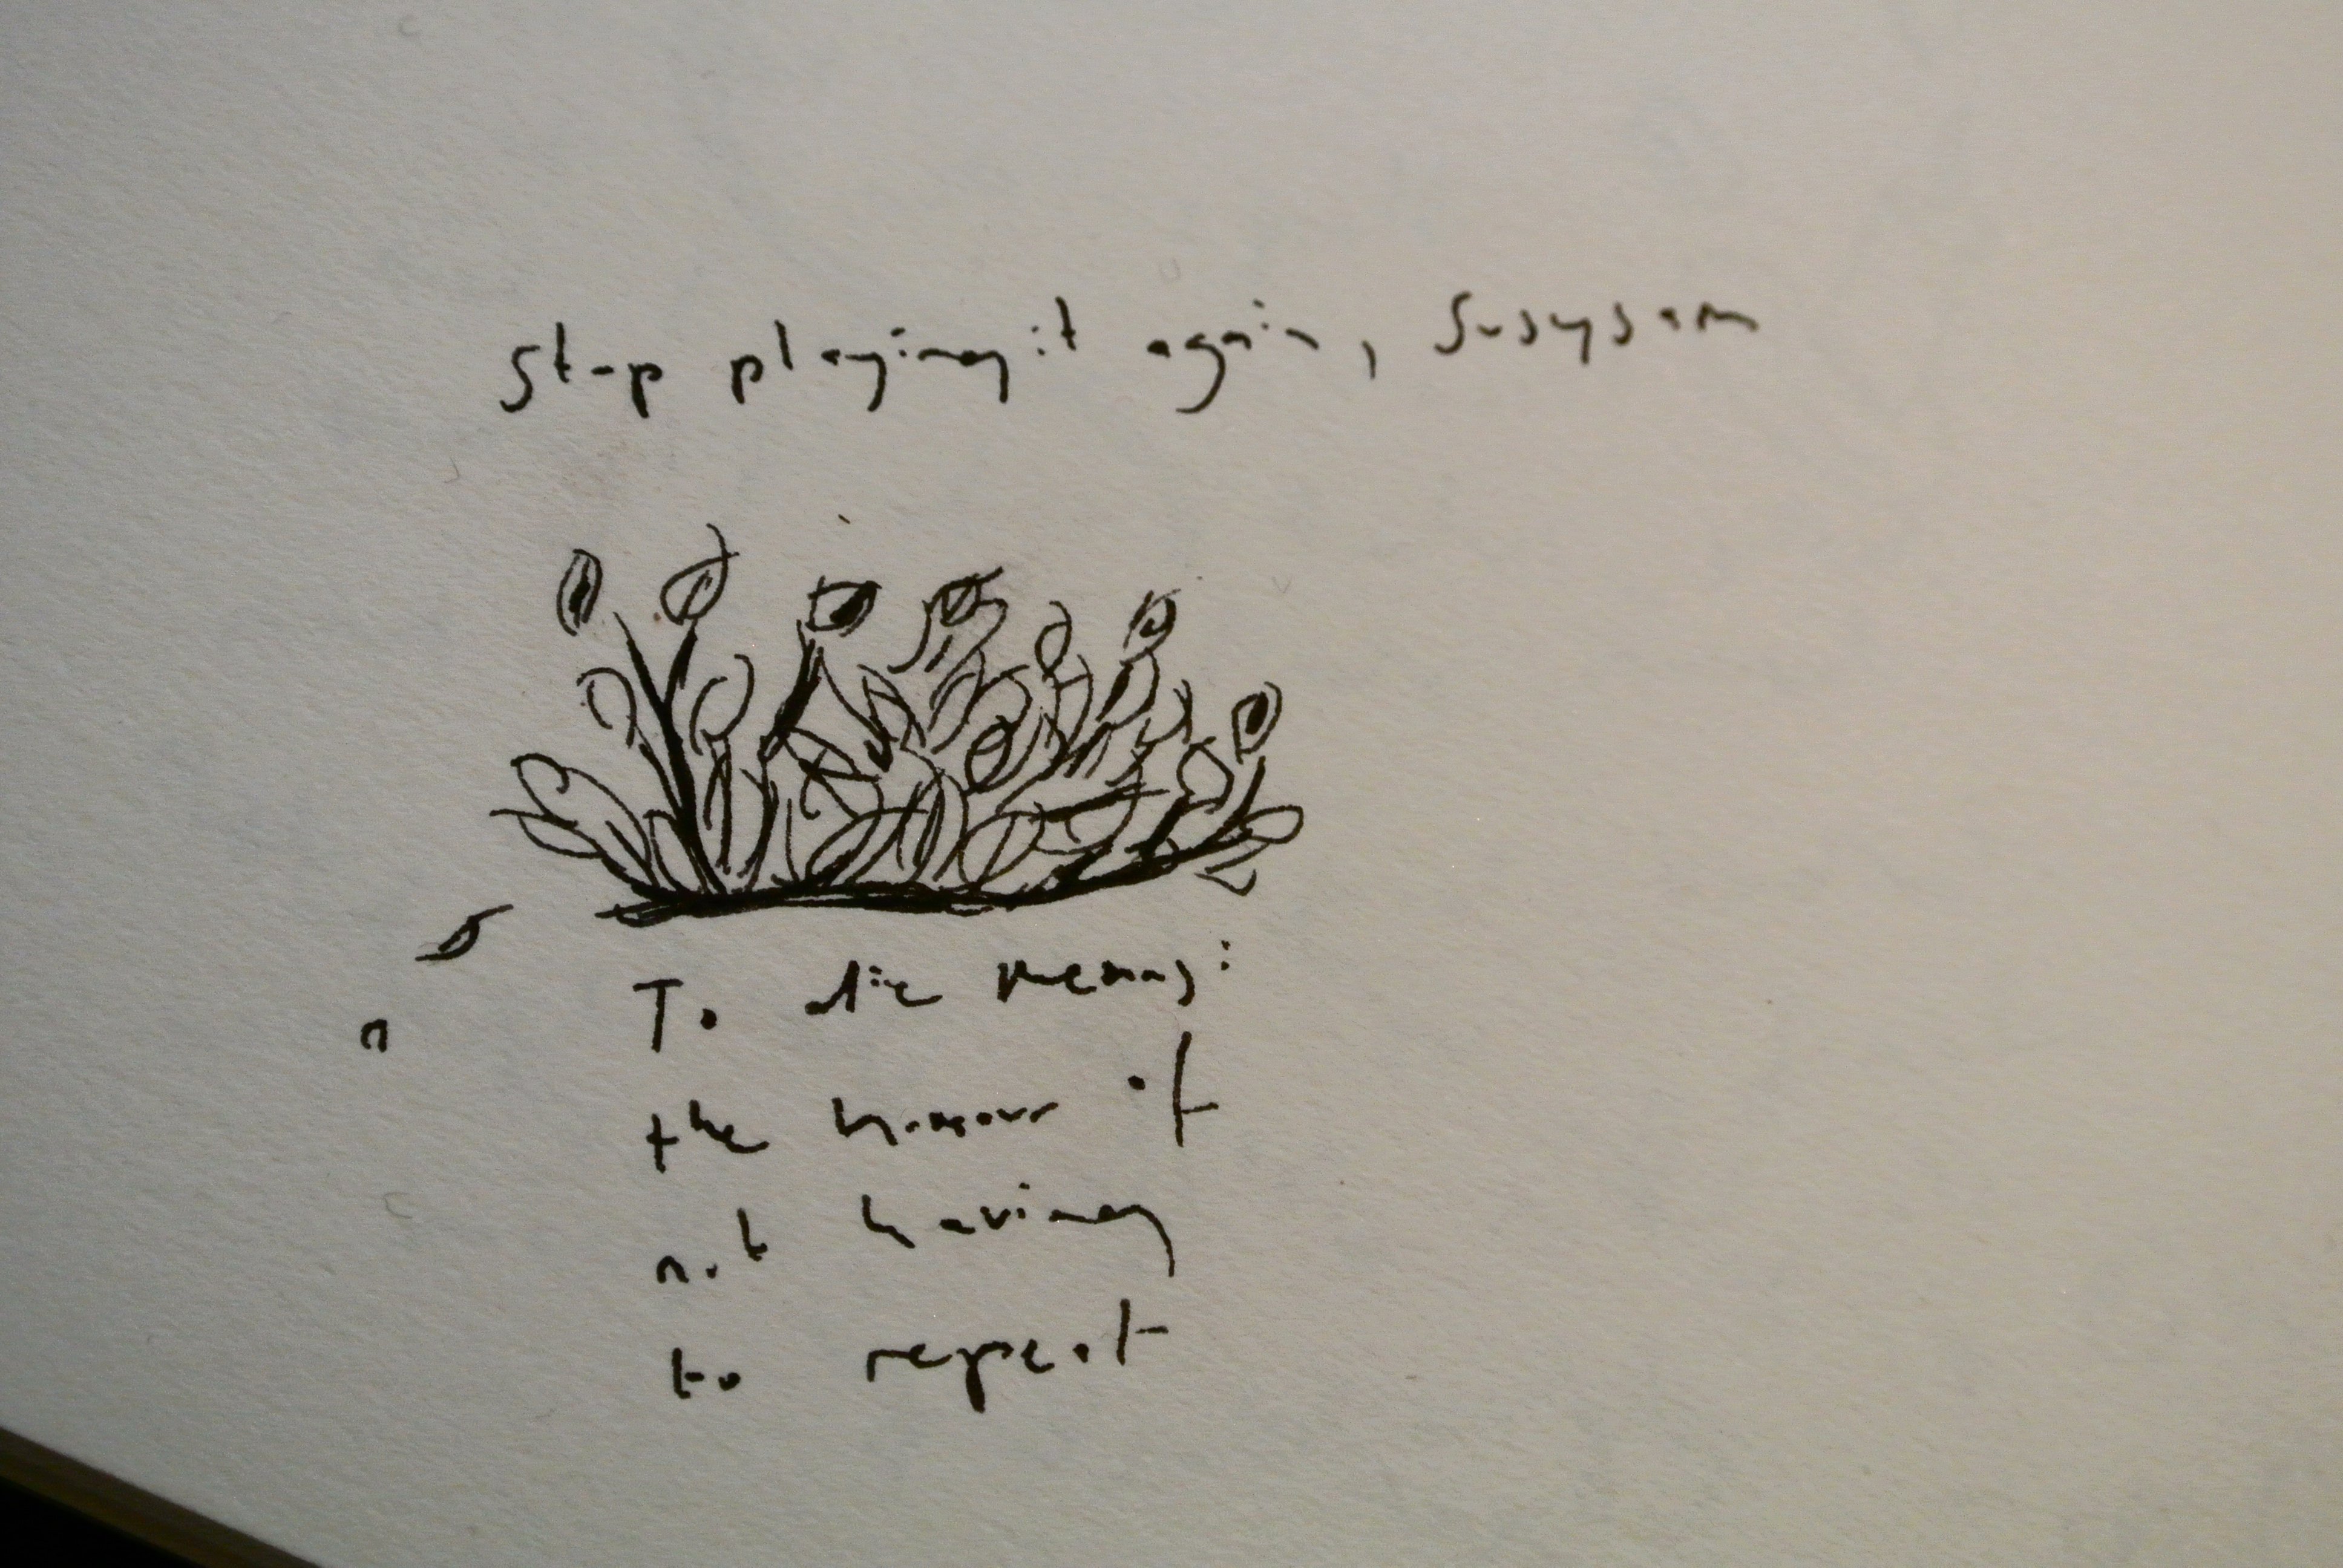 Stop playing it again, Susysam
To die means:
the honour of
not having
to repeat